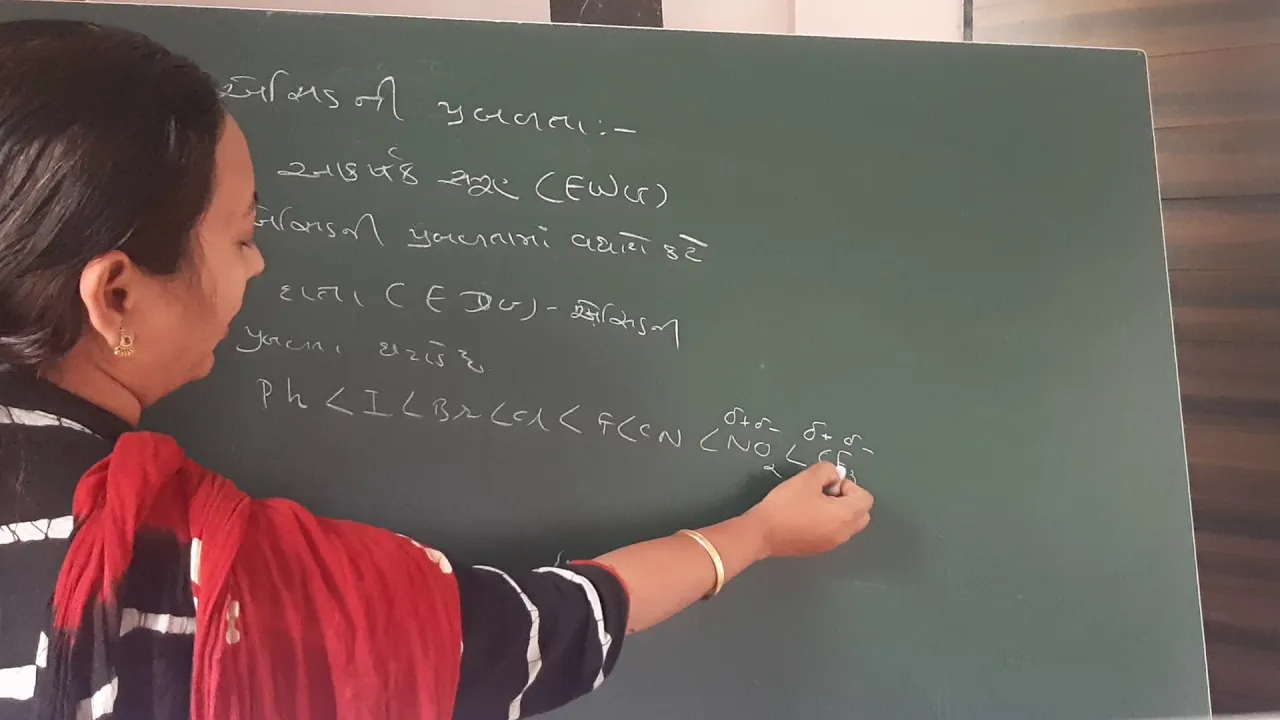 એસિડ ની પ્રબળતા :-
આકર્ષક સમૂહ (EWG)
એસિડની પ્રબળતામાં વધારો કરે
દાતા (EDG) - એસિડની
પ્રબળતા ઘટાડે છે
Ph < I < Br < Cl < F < CN < NO₂ < CF₃
δ+ δ- δ+ δ-